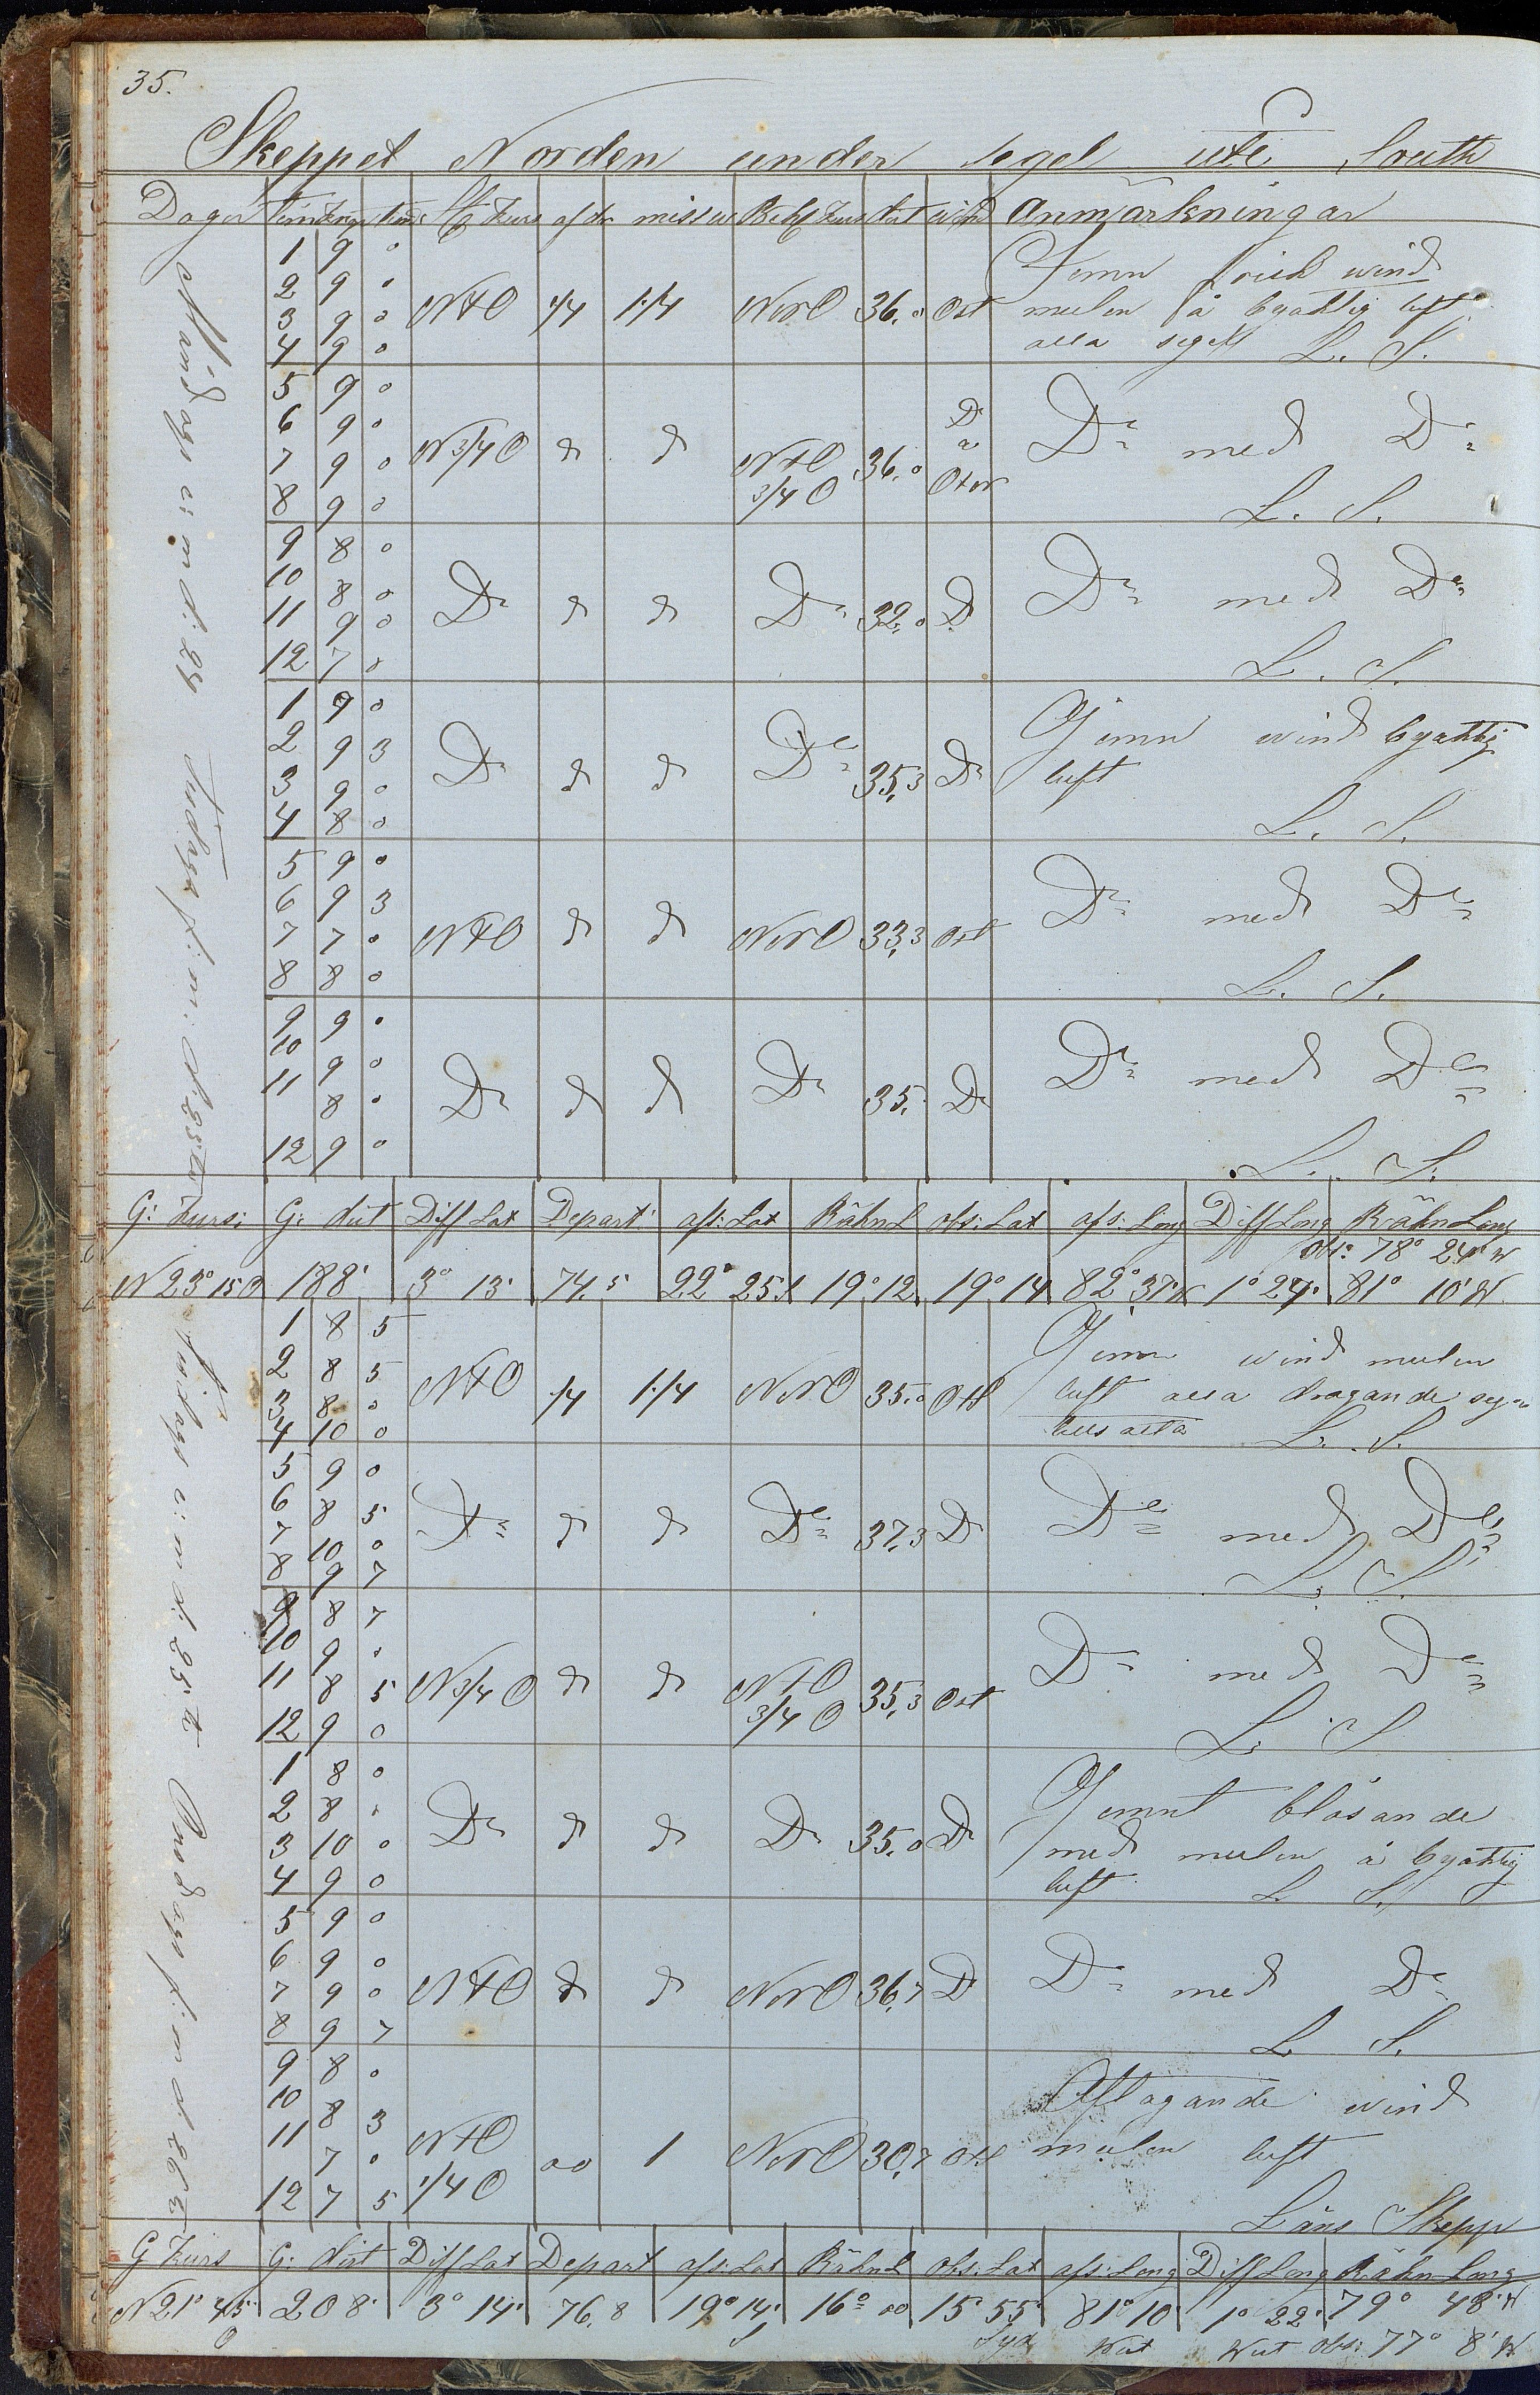 35.
Skeppet Norden under segel ute South
Dagar tim knop Kurs afdr missv Behl Kurs dist wind Anmärkningar
Måndags e: m d: 24 Tisdags f: m: d. 25te
1 9 0
2 9 0
3 9 0
4 9 0
NtO 1/4 1 1/4 NNO 36.0 Ost
Jemn frisk wind
mulen å byaktig luft
alla segel L. S.
5 9 0
6 9 0
7 9 0
8 9 0
N 3/4 O d d NtO 3/4 O 36.0 Do å OtN
Do med Do
L. S.
9 8 0
10 8 0
11 9 0
12 7 0
Do d d Do 32.0 D
Do med Do
L. S.
1 9 0
2 9 3
3 9 0
4 8 0
Do d d Do 35,3 Do
Jemn wind byaktig
luft
L. S.
5 9 0
6 9 3
7 7 0
8 8 0
NtO d d NNO 33,3 Ost
Do med Do
L. S.
9 9 0
10 9 0
11 8 0
12 9 0
Do d d Do 35. Do
Do med Do
L. S.
G: Kurs: G: dist Diff Lat Depart afs: Lat Räkn L obs: Lat afs: Long Diff Long Räkn Long
Obs: 78° 24' W
N 23° 15 O 188' 3° 13' 74.5 22° 25 S 19° 12 19° 14 82° 37 W 1° 27' 81° 10' W
Tisdags e: m d: 25te Onsdags f: m d. 26te
1 8 5
2 8 5
3 8 0
4 10 0
NtO 1/4 1 1/4 NNO 35.0 Ost
Jemn wind mulen
luft alla dragande seg
tillsatta L. S.
5 9 0
6 8 5
7 10 0
8 9 7
Do d d Do 37,3 D
Do med Do
L. S.
9 8 7
10 9 0
11 8 5
12 9 0
N 3/4 O d d NtO 3/4 O 35,3 Ost
Do med Do
L. S
1 8 0
2 8 0
3 10 0
4 9 0
Do d d Do 35.0 Do
Jemnt blåsande
med mulen å byaktig
luft L. S.
5 9 0
6 9 0
7 9 0
8 9 7
NtO d d NNO 36,7 D
Do med Do
L S.
9 8 0
10 8 3
11 7 0
12 7 5
NtO 1/4 O 00 1 NNO 30,7 Ost
Aftagande wind
mulen luft
Läns Skepp
G Kurs G: dist Diff Lat Depart afs: Lat Räkn L Obs: Lat afs: Long Diff Long Räkn Long
N 21° 45' O 208' 3° 14' 76,8 19° 14' S 16° 00 15 55' Syd 81° 10' West 1° 22' West 79° 48' W
Obs: 77° 8' W